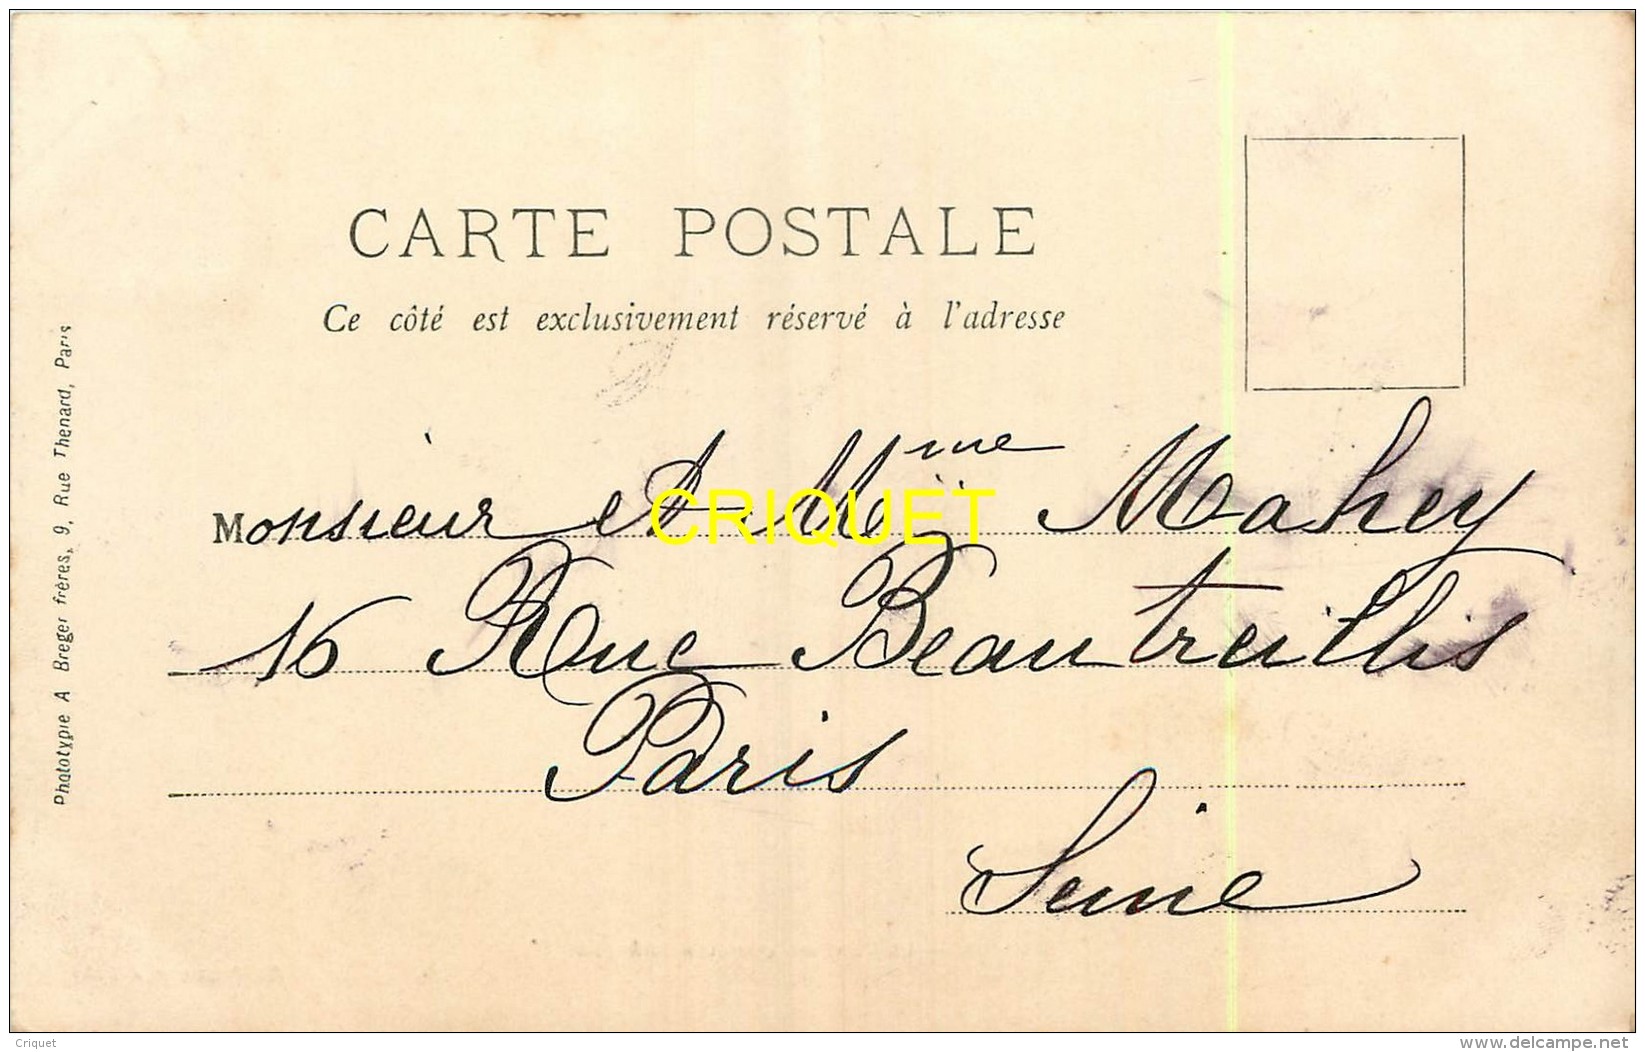 CARTE POSTALE
Ce côté est exclusivement réservé à l'adresse
Monsieur et Mme Mahey
CRIQUET
16 Rue Beautreillis
Paris
Seine
Phototypie A Breger frères, 9, Rue Thenard, Paris
Criquet
delcampe.net